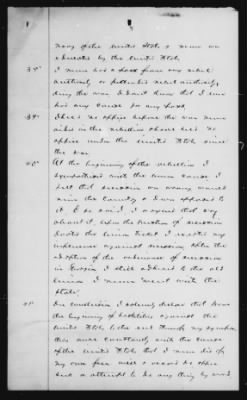 navy of the United States & never
educated by the United States
38th I never had a pass from any rebel
authority or pretended rebel authority
during the war & don't know that I ever
had any cause for any pass.
39th I held no office before the war never
aided in the rebellion & have held no
office under the United States since
the war.
40th At the beginning of the rebellion I
sympathized with the union cause I
felt that secession was wrong would
ruin the country & I was opposed to
it & so said I argued that way
about it, upon the question of secession
voted the union ticket I exerted my
influence against secession after the
adoption of the ordinance of secession
in Georgia I still adhered to the old
union I never went with the
State.
41st In conclusion I solemnly declare that from
the beginning of hostilities against the
United States to the end thereof my sympathies
were constantly with the cause
of the United States that I never did of
my own free will & accord do
or attempt to do any thing by word